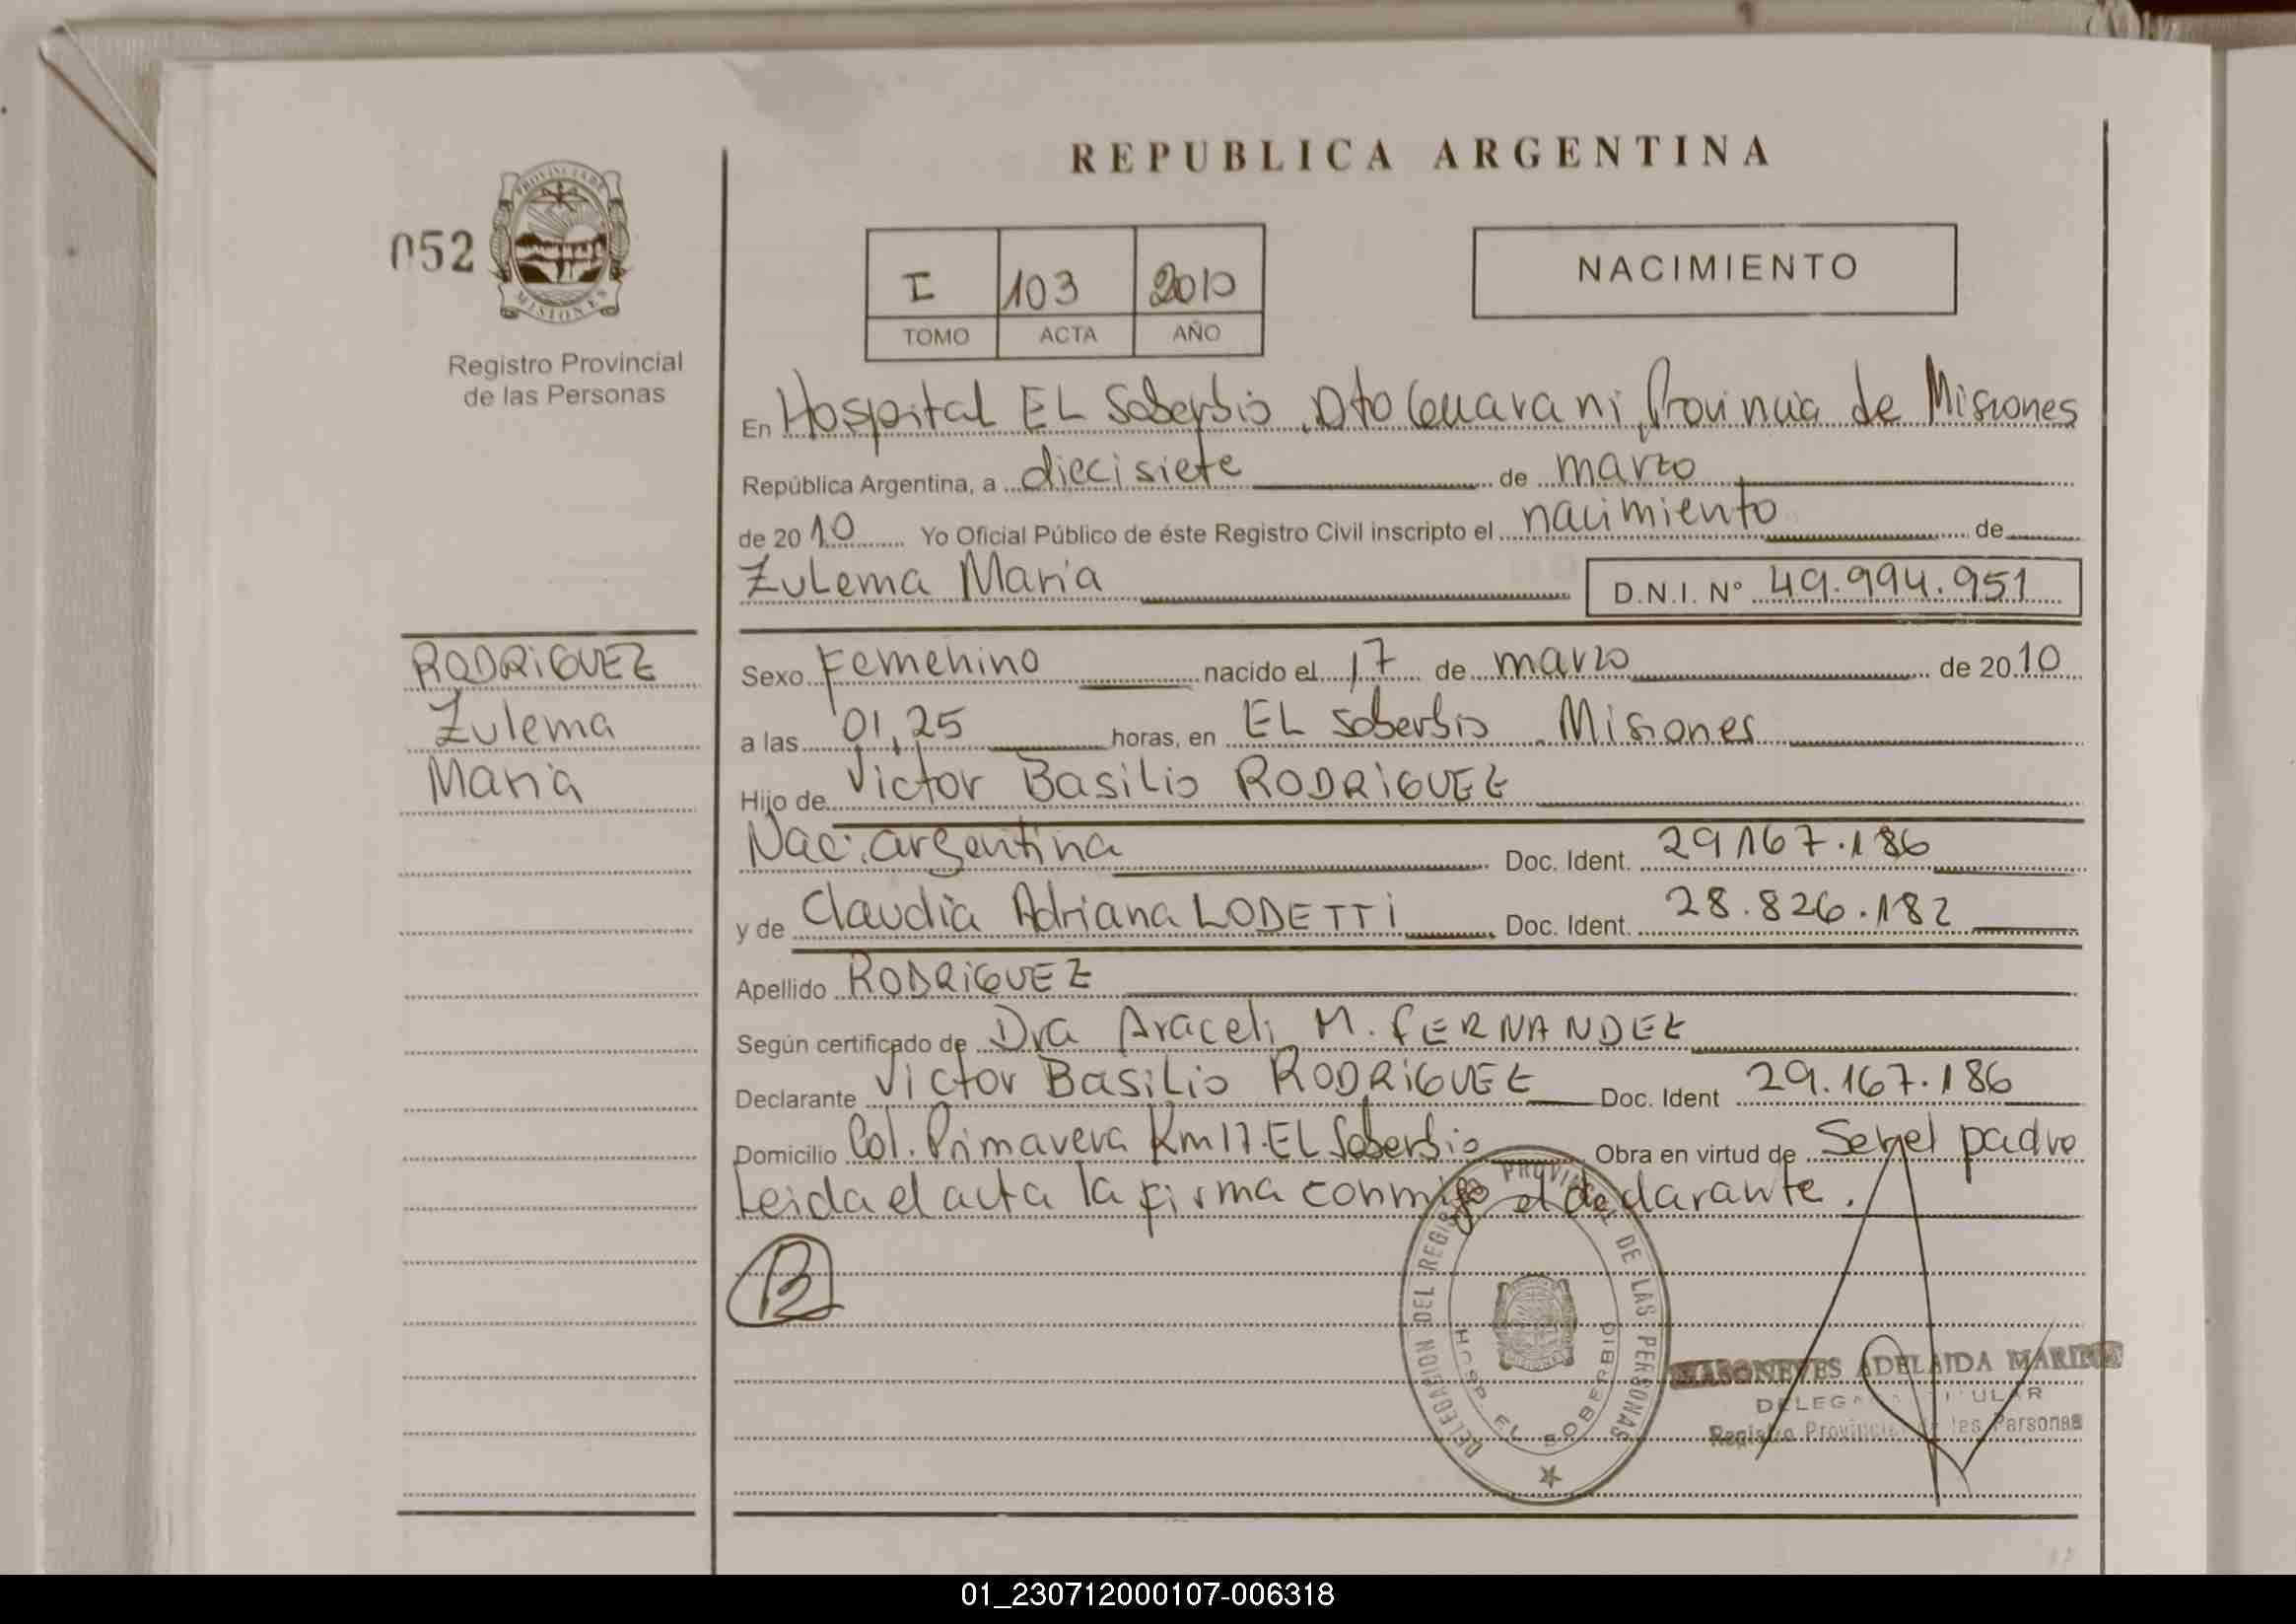 REPUBLICA ARGENTINA
052
PROVINCIA DE
MISIONES
Registro Provincial
de las Personas
I 103 2010
TOMO ACTA AÑO
NACIMIENTO
En Hospital EL Soberbio, Dto Guarani, Provincia de Misiones
República Argentina, a diecisiete de marzo
de 2010 Yo Oficial Público de éste Registro Civil inscripto el nacimiento de
Zulema Maria D.N.I. Nº 49.994.951
RODRIGUEZ
Zulema
Maria
Sexo Femenino nacido el 17 de marzo de 2010
a las 01,25 horas, en EL Soberbio . Misiones
Hijo de Victor Basilio RODRIGUEZ
Nac: argentina Doc. Ident. 29.167.186
y de Claudia Adriana LODETTI Doc. Ident. 28.826.182
Apellido RODRIGUEZ
Según certificado de Dra Araceli M. FERNANDEZ
Declarante Victor Basilio RODRIGUEZ Doc. Ident 29.167.186
Domicilio Col. Primavera Km 17. EL Soberbio Obra en virtud de Ser el padre
Leida el acta la firma conmigo el declarante.
B
DELEGACION DEL REGISTRO PROVINCIAL DE LAS PERSONAS
HOSP. EL SOBERBIO
ADELAIDA
DELEGADA TITULAR
Registro Provincial de las Personas
01_230712000107-006318